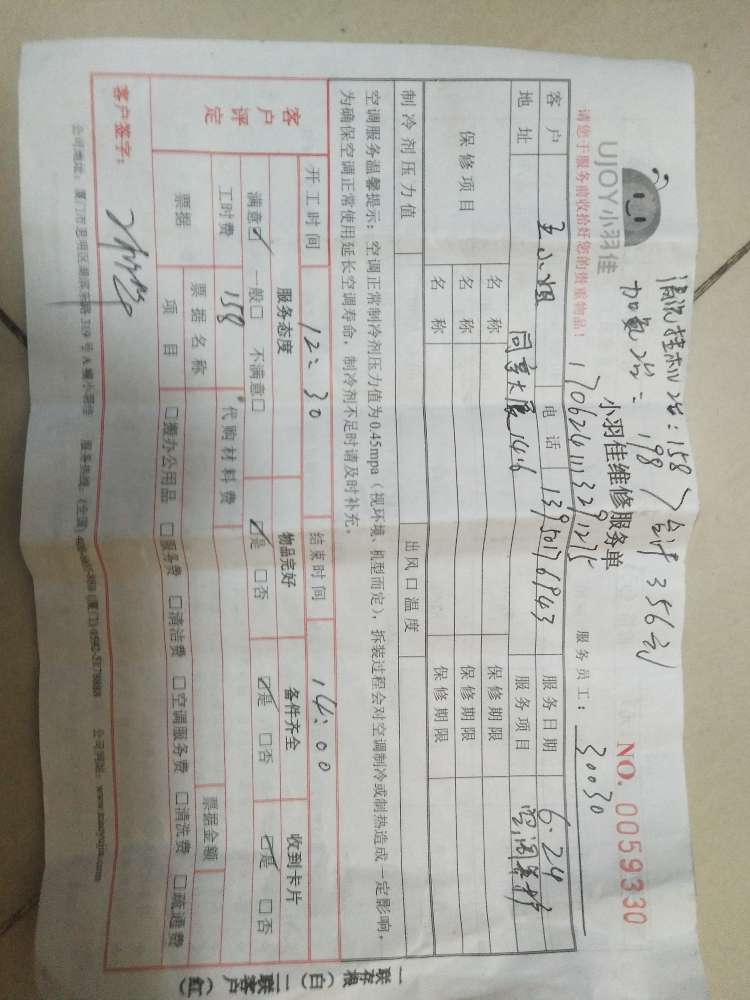 清洗挂机2台：158
加氟2台：198
合计356元
UJOY小羽佳
小羽佳维修服务单
NO. 0059330
170624111332911275
请您于服务前收拾好您的贵重物品！
服务员工： 30030
客户 王小姐 电话 13950176943 服务日期 6.24
地址 同亨大厦1416 服务项目 空调养护
保修项目 名称 保修期限
名称 保修期限
名称 保修期限
制冷剂压力值 出风口温度
空调服务温馨提示：空调正常制冷剂压力值为0.45mpa（视环境、机型而定），拆装过程会对空调制冷或制热造成一定影响，
为确保空调正常使用延长空调寿命，制冷剂不足时请及时补充。
开工时间 12：30 结束时间 14：00
客户评定 服务态度 物品完好 备件齐全 收到卡片
满意☑ 一般□ 不满意□ ☑是 □否 ☑是 □否 ☑是 □否
工时费 158 代购材料费
票据 票据名称 票据金额
项目 □搬办公用品 □服务费 □清洁费 □空调服务费 □清洗费 □疏通费
客户签字：
公司地址：厦门市思明区湖滨东路319号A幢小羽佳 服务热线：(全国) (厦门) 公司网址：www.xiaoyujia.com
一联存根（白）二联客户（红）